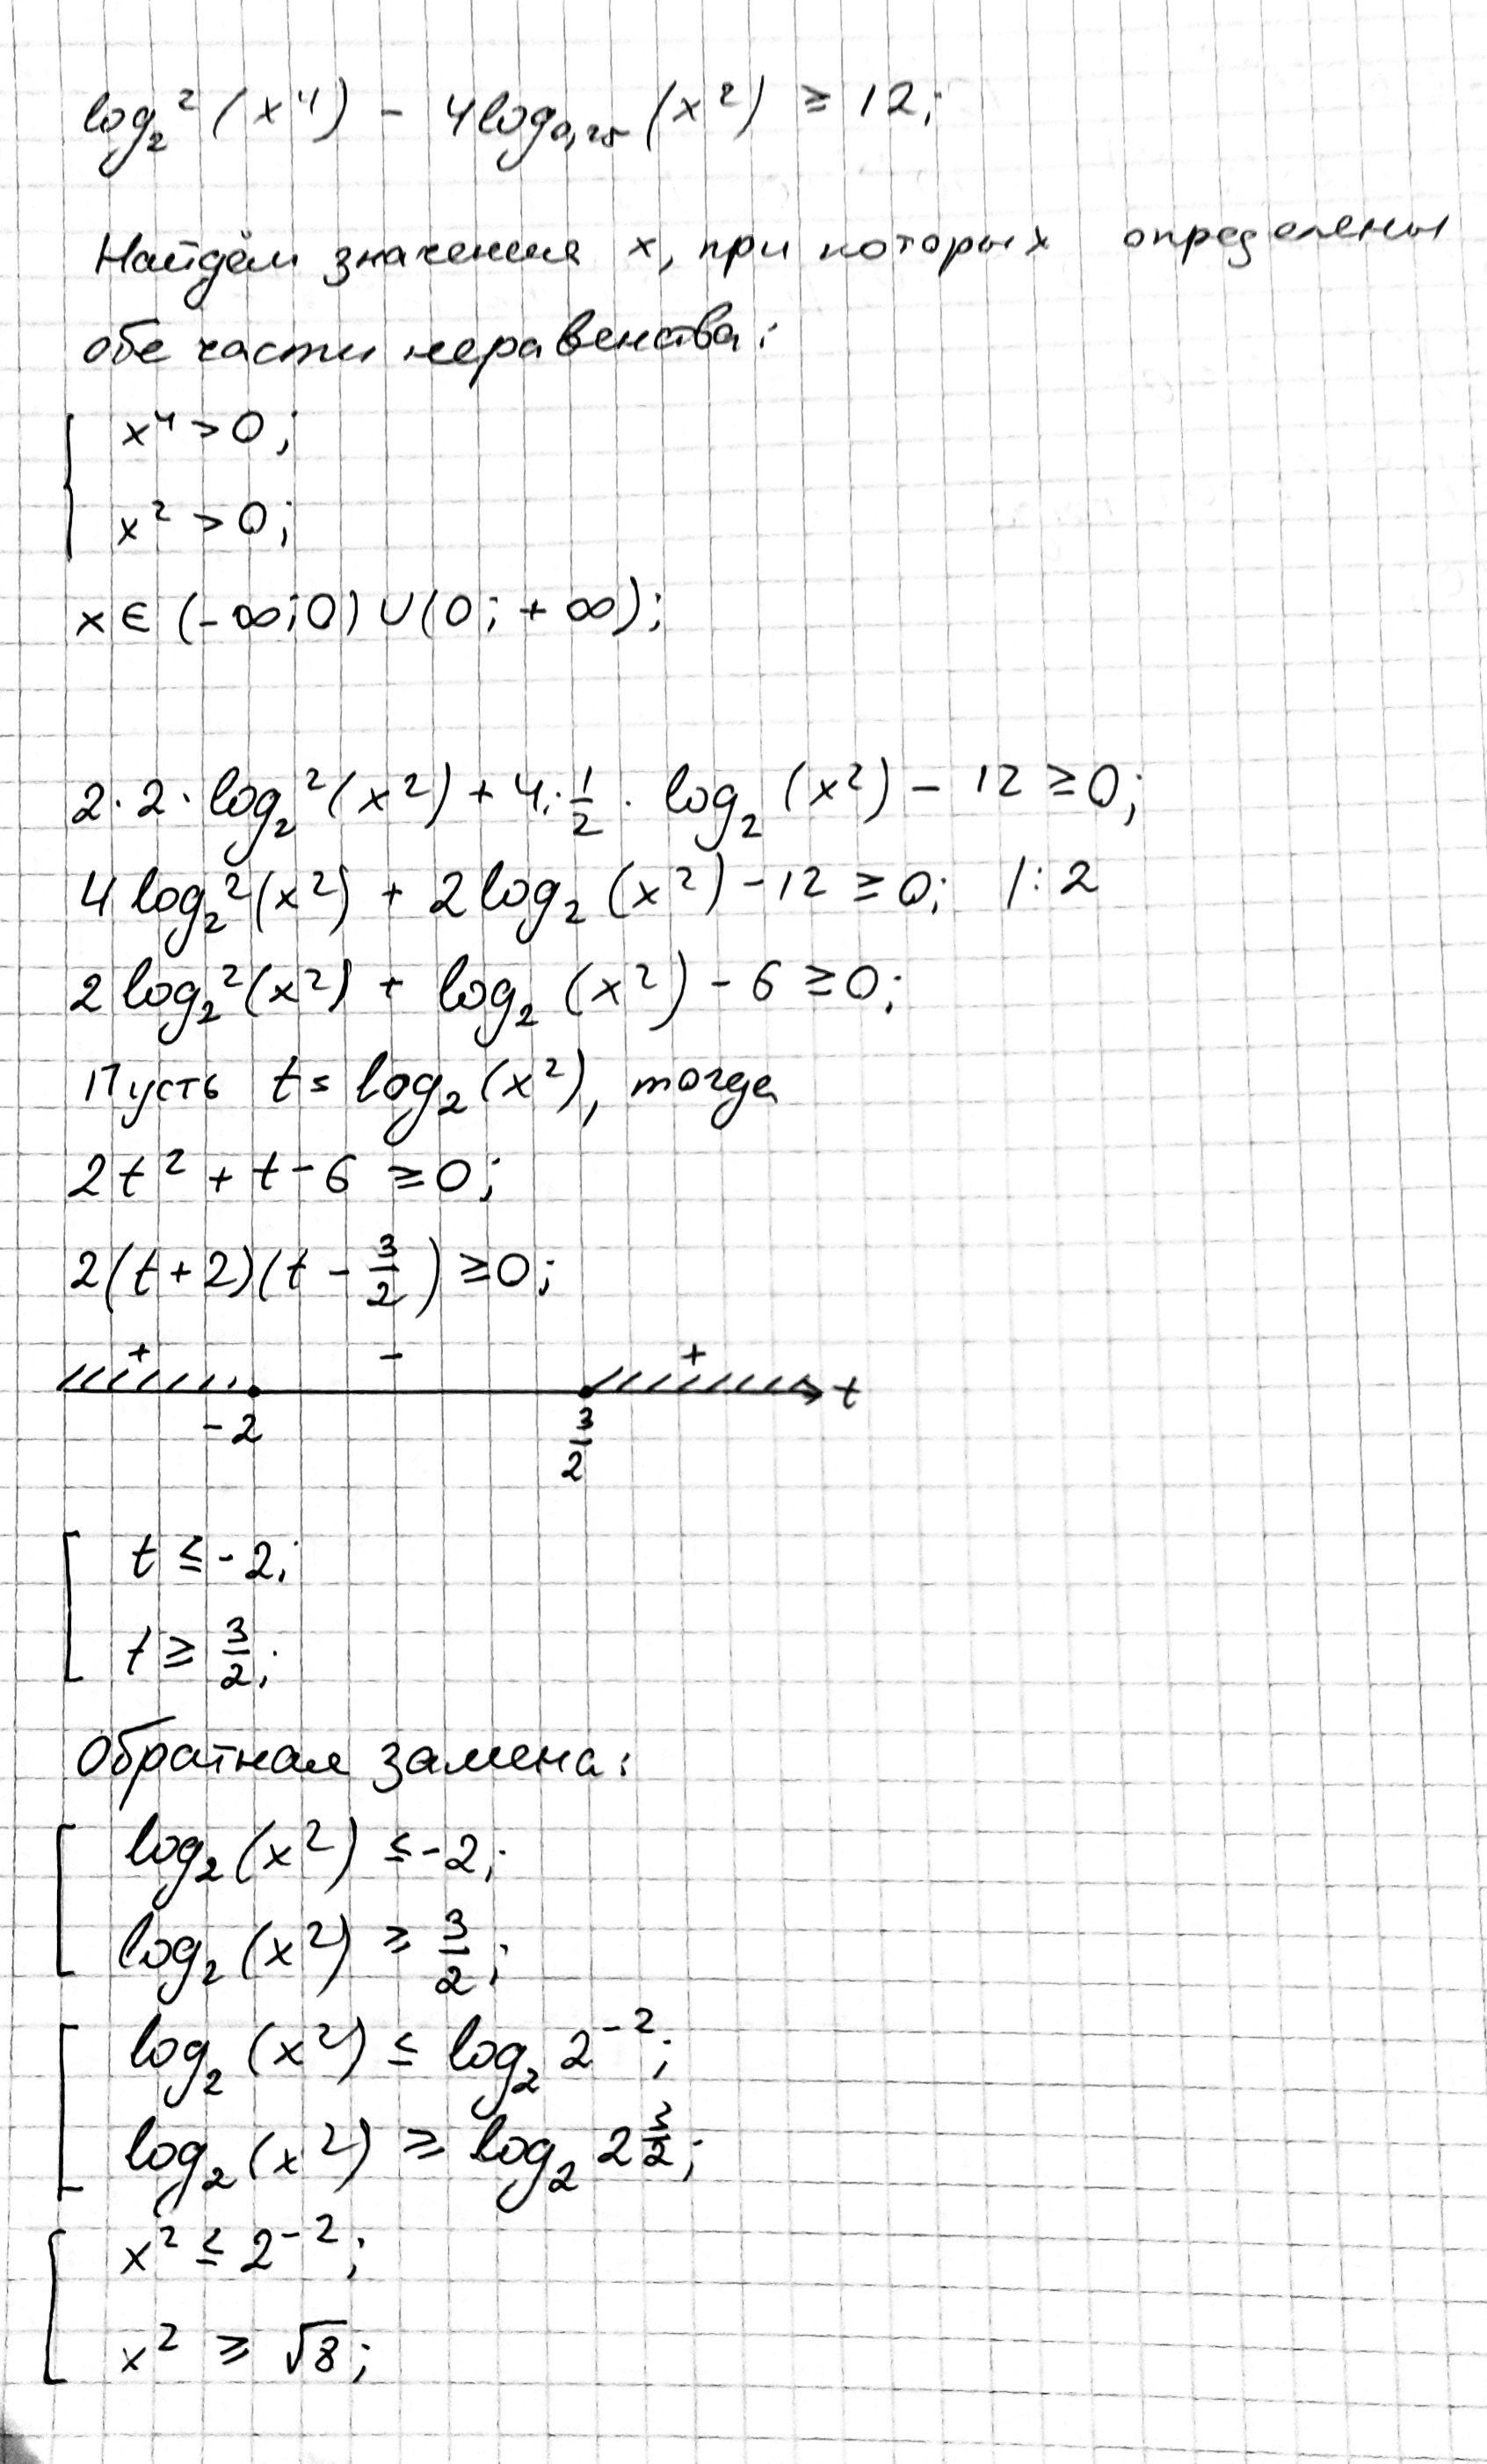 log₂²(x⁴) - 4log₀,₂₅(x²) ≥ 12;
Найдём значения x, при которых определены
обе части неравенства:
x⁴ > 0;
x² > 0;
x ∈ (-∞; 0) ∪ (0; +∞);
2·2·log₂²(x²) + 4·1/2·log₂(x²) - 12 ≥ 0;
4log₂²(x²) + 2log₂(x²) - 12 ≥ 0; |:2
2log₂²(x²) + log₂(x²) - 6 ≥ 0;
Пусть t = log₂(x²), тогда
2t² + t - 6 ≥ 0;
2(t+2)(t - 3/2) ≥ 0;
+ - +
-2 3/2 t
t ≤ -2;
t ≥ 3/2;
Обратная замена:
log₂(x²) ≤ -2;
log₂(x²) ≥ 3/2;
log₂(x²) ≤ log₂ 2⁻²;
log₂(x²) ≥ log₂ 2^(3/2);
x² ≤ 2⁻²;
x² ≥ √8;